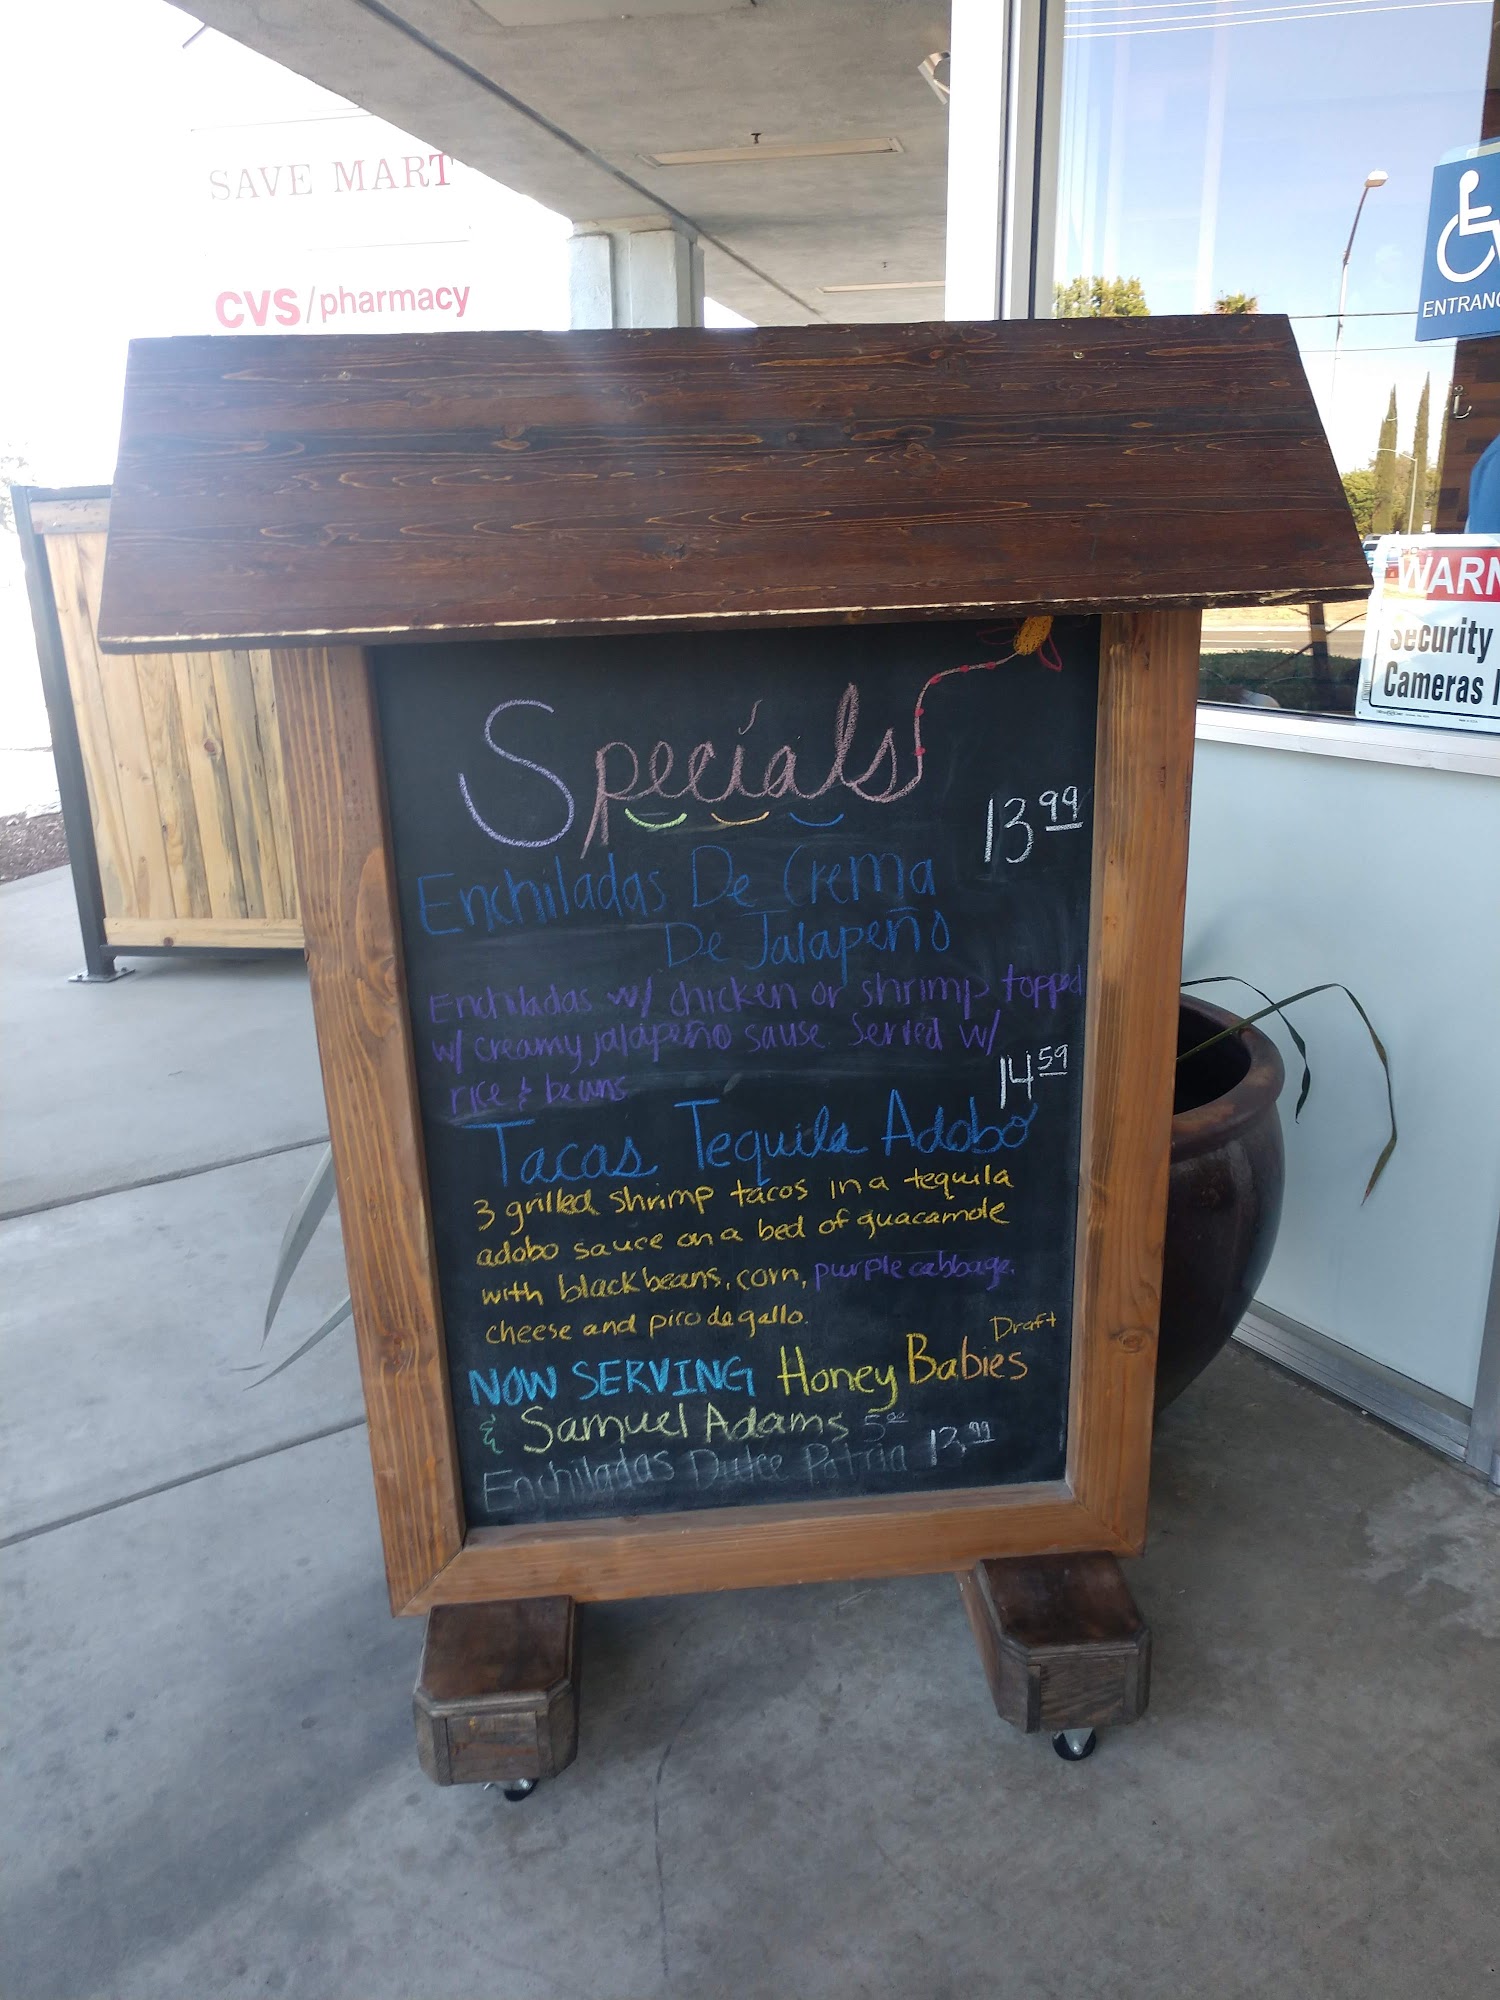 SAVE MART
CVS/pharmacy
ENTRANC
WARN
Security
Cameras
Specials
13.99
Enchiladas De Crema
De Jalapeño
Enchiladas w/ chicken or shrimp topped
w/ creamy jalapeño sause. Served w/
rice & beans
14.59
Tacos Tequila Adobo
3 grilled shrimp tacos in a tequila
adobo sauce on a bed of guacamole
with black beans, corn, purple cabbage,
cheese and pico de gallo.
Draft
NOW SERVING Honey Babies
& Samuel Adams 5.00
Enchiladas Dulce Patria 13.99